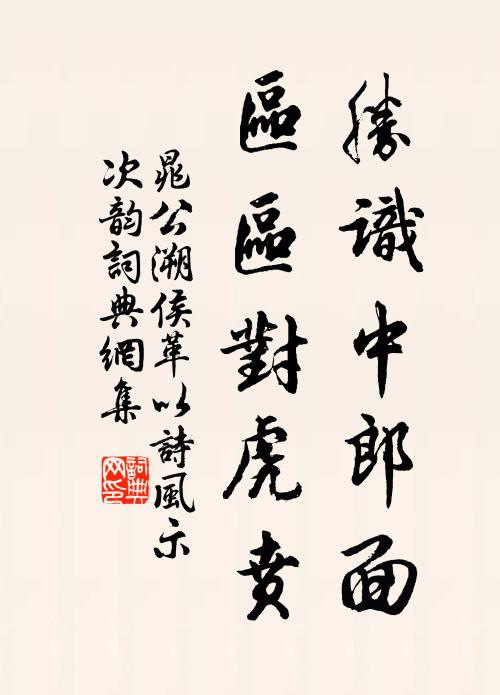 勝識中郎面
區區對虎賁
晁公溯侯革以詩風示
次韵詞典網集
詞典網印